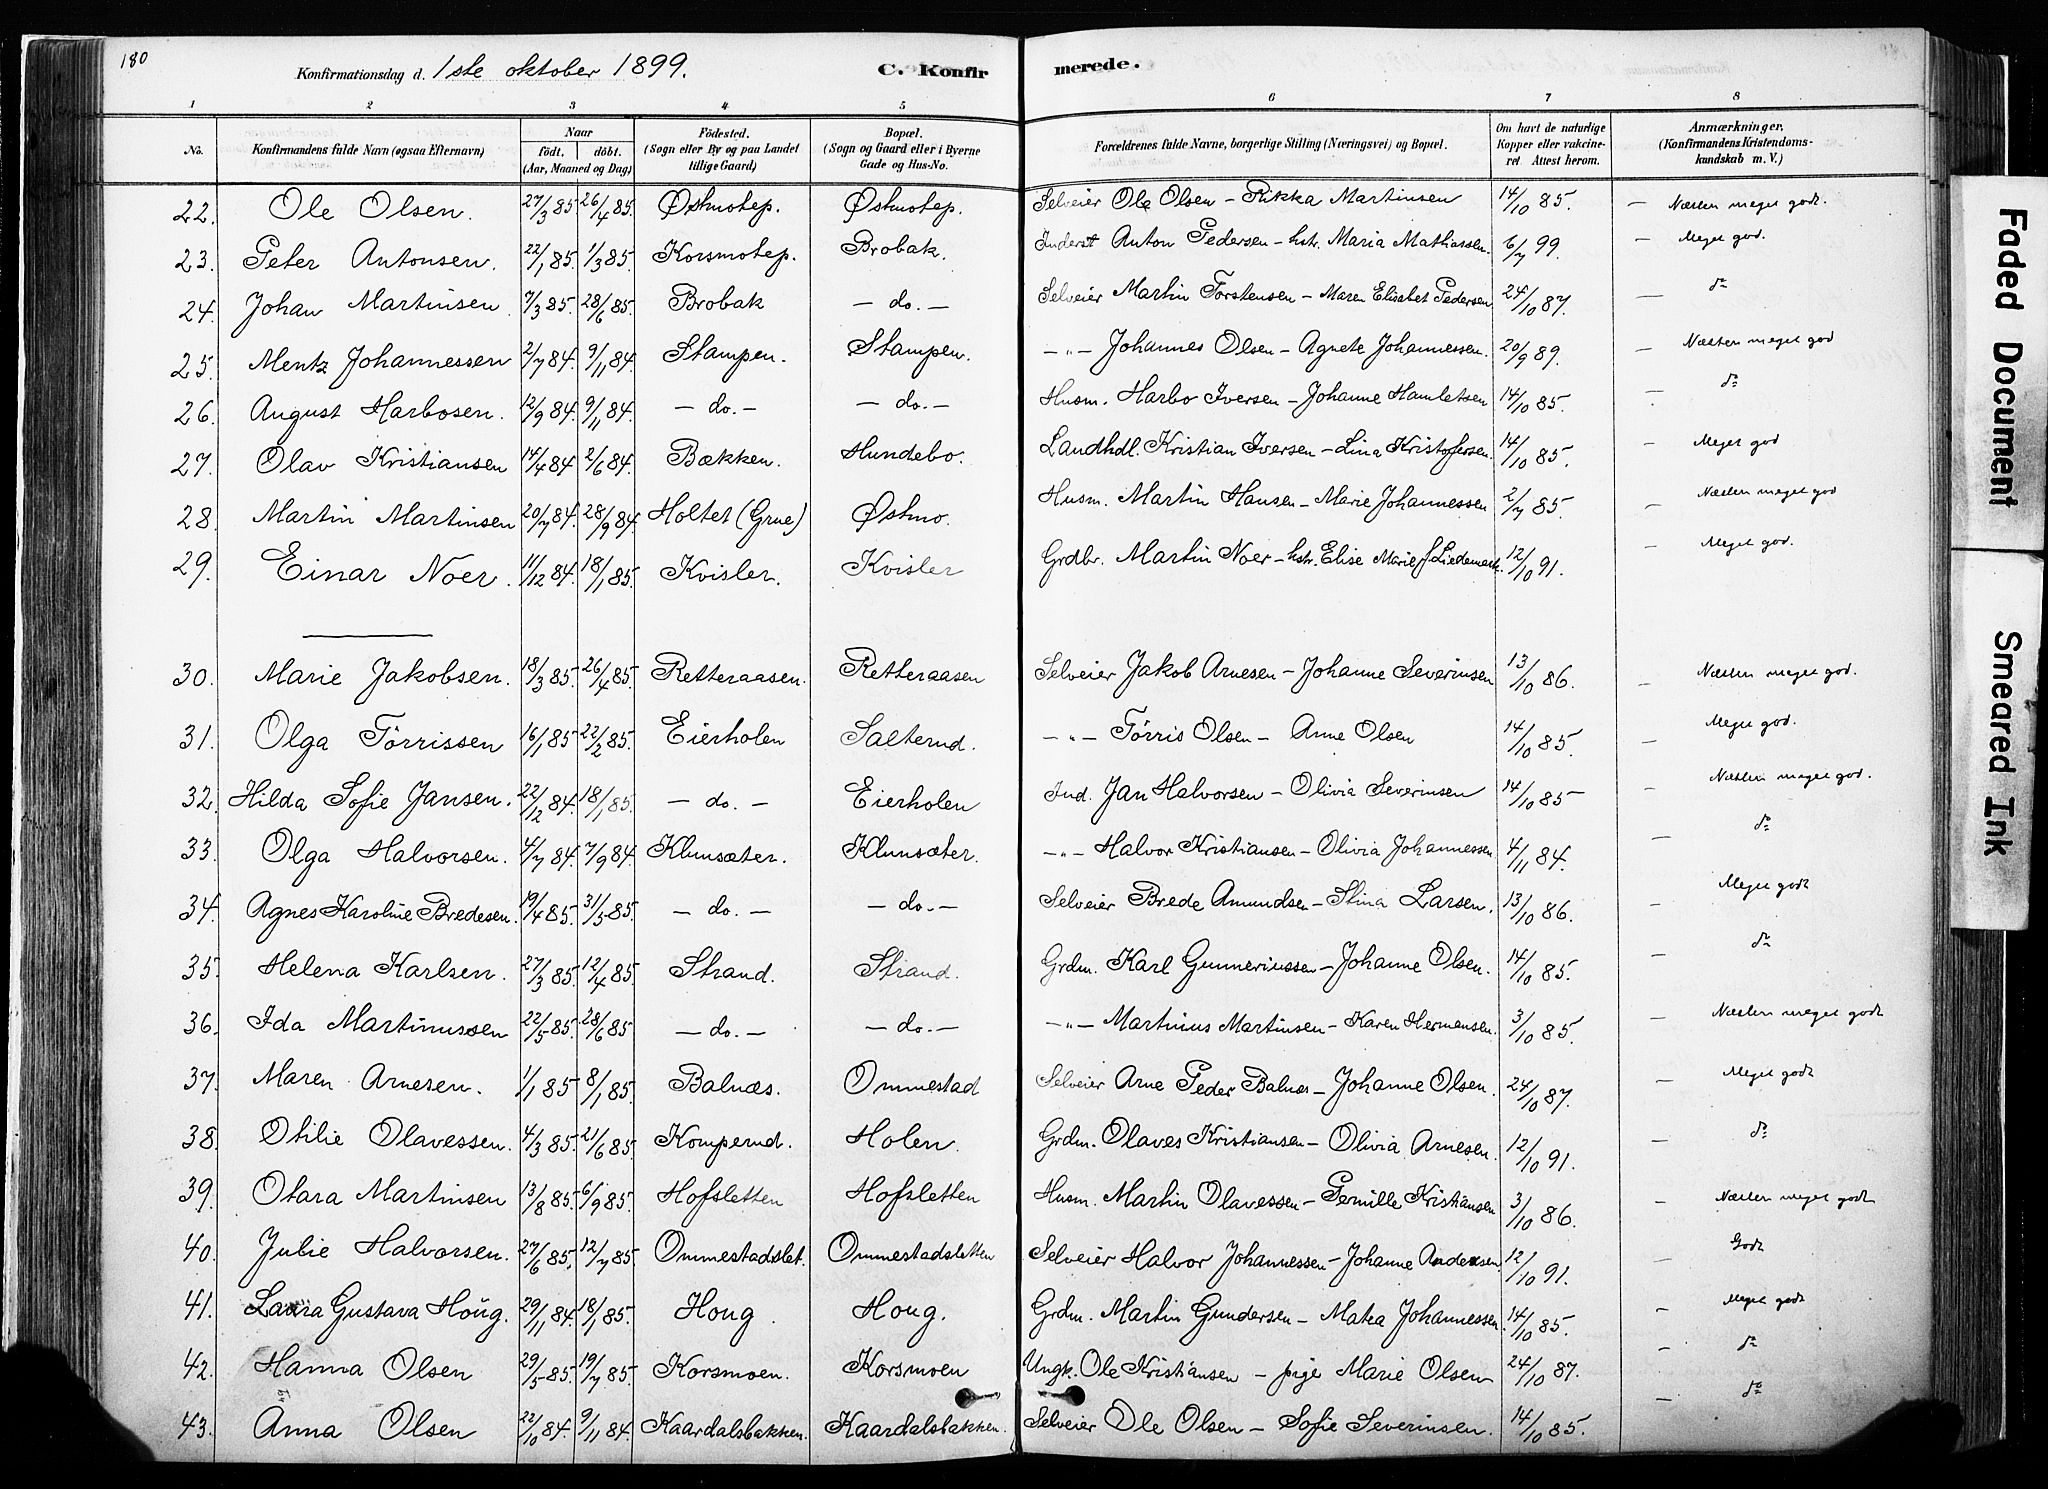 180
Konfirmationsdag d. 1ste oktober 1899.
C. Konfirmerede.
1 2 3 4 5 6 7 8
No. Konfirmandens fulde Navn (ogsaa Efternavn) Naar födt. döbt. (Aar, Maaned og Dag) Födested. (Sogn eller By og paa Landet tillige Gaard) Bopæl. (Sogn og Gaard eller i Byerne Gade og Hus-No. Forældrenes fulde Navne, borgerlige Stilling (Næringsvei) og Bopæl. Om havt de naturlige Kopper eller vakcineret. Attest herom. Anmærkninger. (Konfirmandens Kristendomskundskab m. V.)
22. Ole Olsen. 27/3 85 26/4 85. Østmotep. Østmotep. Selveier Ole Olsen – Rikka Martinsen 14/10 85. – Næsten meget godt.
23. Peter Antonsen. 22/1 85. 1/3 85. Korsmotep. Brobak. Inderst Anton Pedersen – hstr. Maria Mathiassen. 6/7 99. – Meget god.
24. Johan Martinsen. 7/3 85. 28/6 85. Brobak – do. – Selveier Martin Torstensen – Maren Elisabet Pedersen 24/10 87. – do
25. Mentz Johannessen 2/7 84. 9/11 84. Stampen. Stampen. – " – Johannes Olsen – Agnete Johannessen. 20/9 89. – Næsten meget god
26. August Harbosen. 12/9 84. 9/11 84. – do. – – do. – Husm. Harbo Iversen – Johanne Hamletsen 14/10 85. – do
27. Olav Kristiansen 14/4 84 2/6 84. Bækken. Hundebo. Landhdl. Kristian Iversen – Lina Kristofersen. 14/10 85. – Meget god
28. Martin Martinsen 20/7 84. 28/9 84. Holtet (Grue) Østmo. Husm. Martin Hansen – Marie Johannessen 2/7 85. – Næsten meget god
29. Einar Noer. 11/12 84. 18/1 85. Kvisler. Kvisler Grdbr. Martin Noer – hstr. Elise Marie J Liedemark. 12/10 91. – Meget god.
30. Marie Jakobsen. 18/3 85. 26/4 85. Retteraasen. Retteraasen Selveier Jakob Arnesen – Johanne Severinsen 13/10 86. – Næsten meget god.
31. Olga Törrissen 16/1 85 22/2 85. Eierholen Salterud. – " – Törris Olsen – Anne Olsen 14/10 85. – Meget god.
32. Hilda Sofie Jansen. 22/12 84. 18/1 85. – do. – Eierholen Ind. Jan Halvorsen – Olivia Severinsen 14/10 85 – Næsten meget god.
33. Olga Halvorsen. 4/7 84. 7/9 84 Klunsæter. Klunsæter. – " – Halvor Kristiansen – Olivia Johannessen 4/11 84. – do
34. Agnes Karoline Bredesen. 19/4 85. 31/5 85. – do. – – do. – Selveier Brede Amundsen – Stina Larsen. 13/10 86. – Meget godt
35. Helena Karlsen. 27/3 85. 12/4 85. Strand. Strand. Grdm. Karl Gunneriussen – Johanne Olsen. 14/10 85. – do
36. Ida Martinussen 22/5 85. 28/6 85 – do. – – do. – – " – Martinius Martinsen – Karen Hermansen. 3/10 85. – Næsten meget godt
37. Maren Arnesen. 1/1 85 8/1 85. Balnæs. Ommestad Selveier Arne Peder Balnæs – Johanne Olsen. 24/10 87. – Meget godt
38. Otilie Olavessen. 4/3 85. 21/6 85. Komperud. Holen. Grdm. Olaves Kristiansen – Olivia Arnesen. 12/10 91. – do
39. Otara Martinsen 13/8 85. 6/9 85. Hofsletten Hofsletten Husm. Martin Olavessen – Pernille Kristiansen 3/10 86. – Næsten meget godt
40. Julie Halvorsen. 27/6 85. 12/7 85. Ommestadslet. Ommestadsletten Selveier Halvor Johannessen – Johanne Andersen. 12/10 91. – Godt
41. Laura Gustava Houg. 29/11 84. 18/1 85. Houg. Houg. Grdm. Martin Gundersen – Matea Johannessen. 14/10 85. – Meget godt
42. Hanna Olsen 29/5 85. 19/7 85. Korsmoen. Korsmoen Ungk. Ole Kristiansen – pige Marie Olsen 24/10 87. – do
43. Anna Olsen 22/10 84. 9/11 84. Kaardalsbakken. Kaardalsbakken. Selveier Ole Olsen – Sofie Severinsen. 14/10 85. – do
Faded Document
Smeared Ink